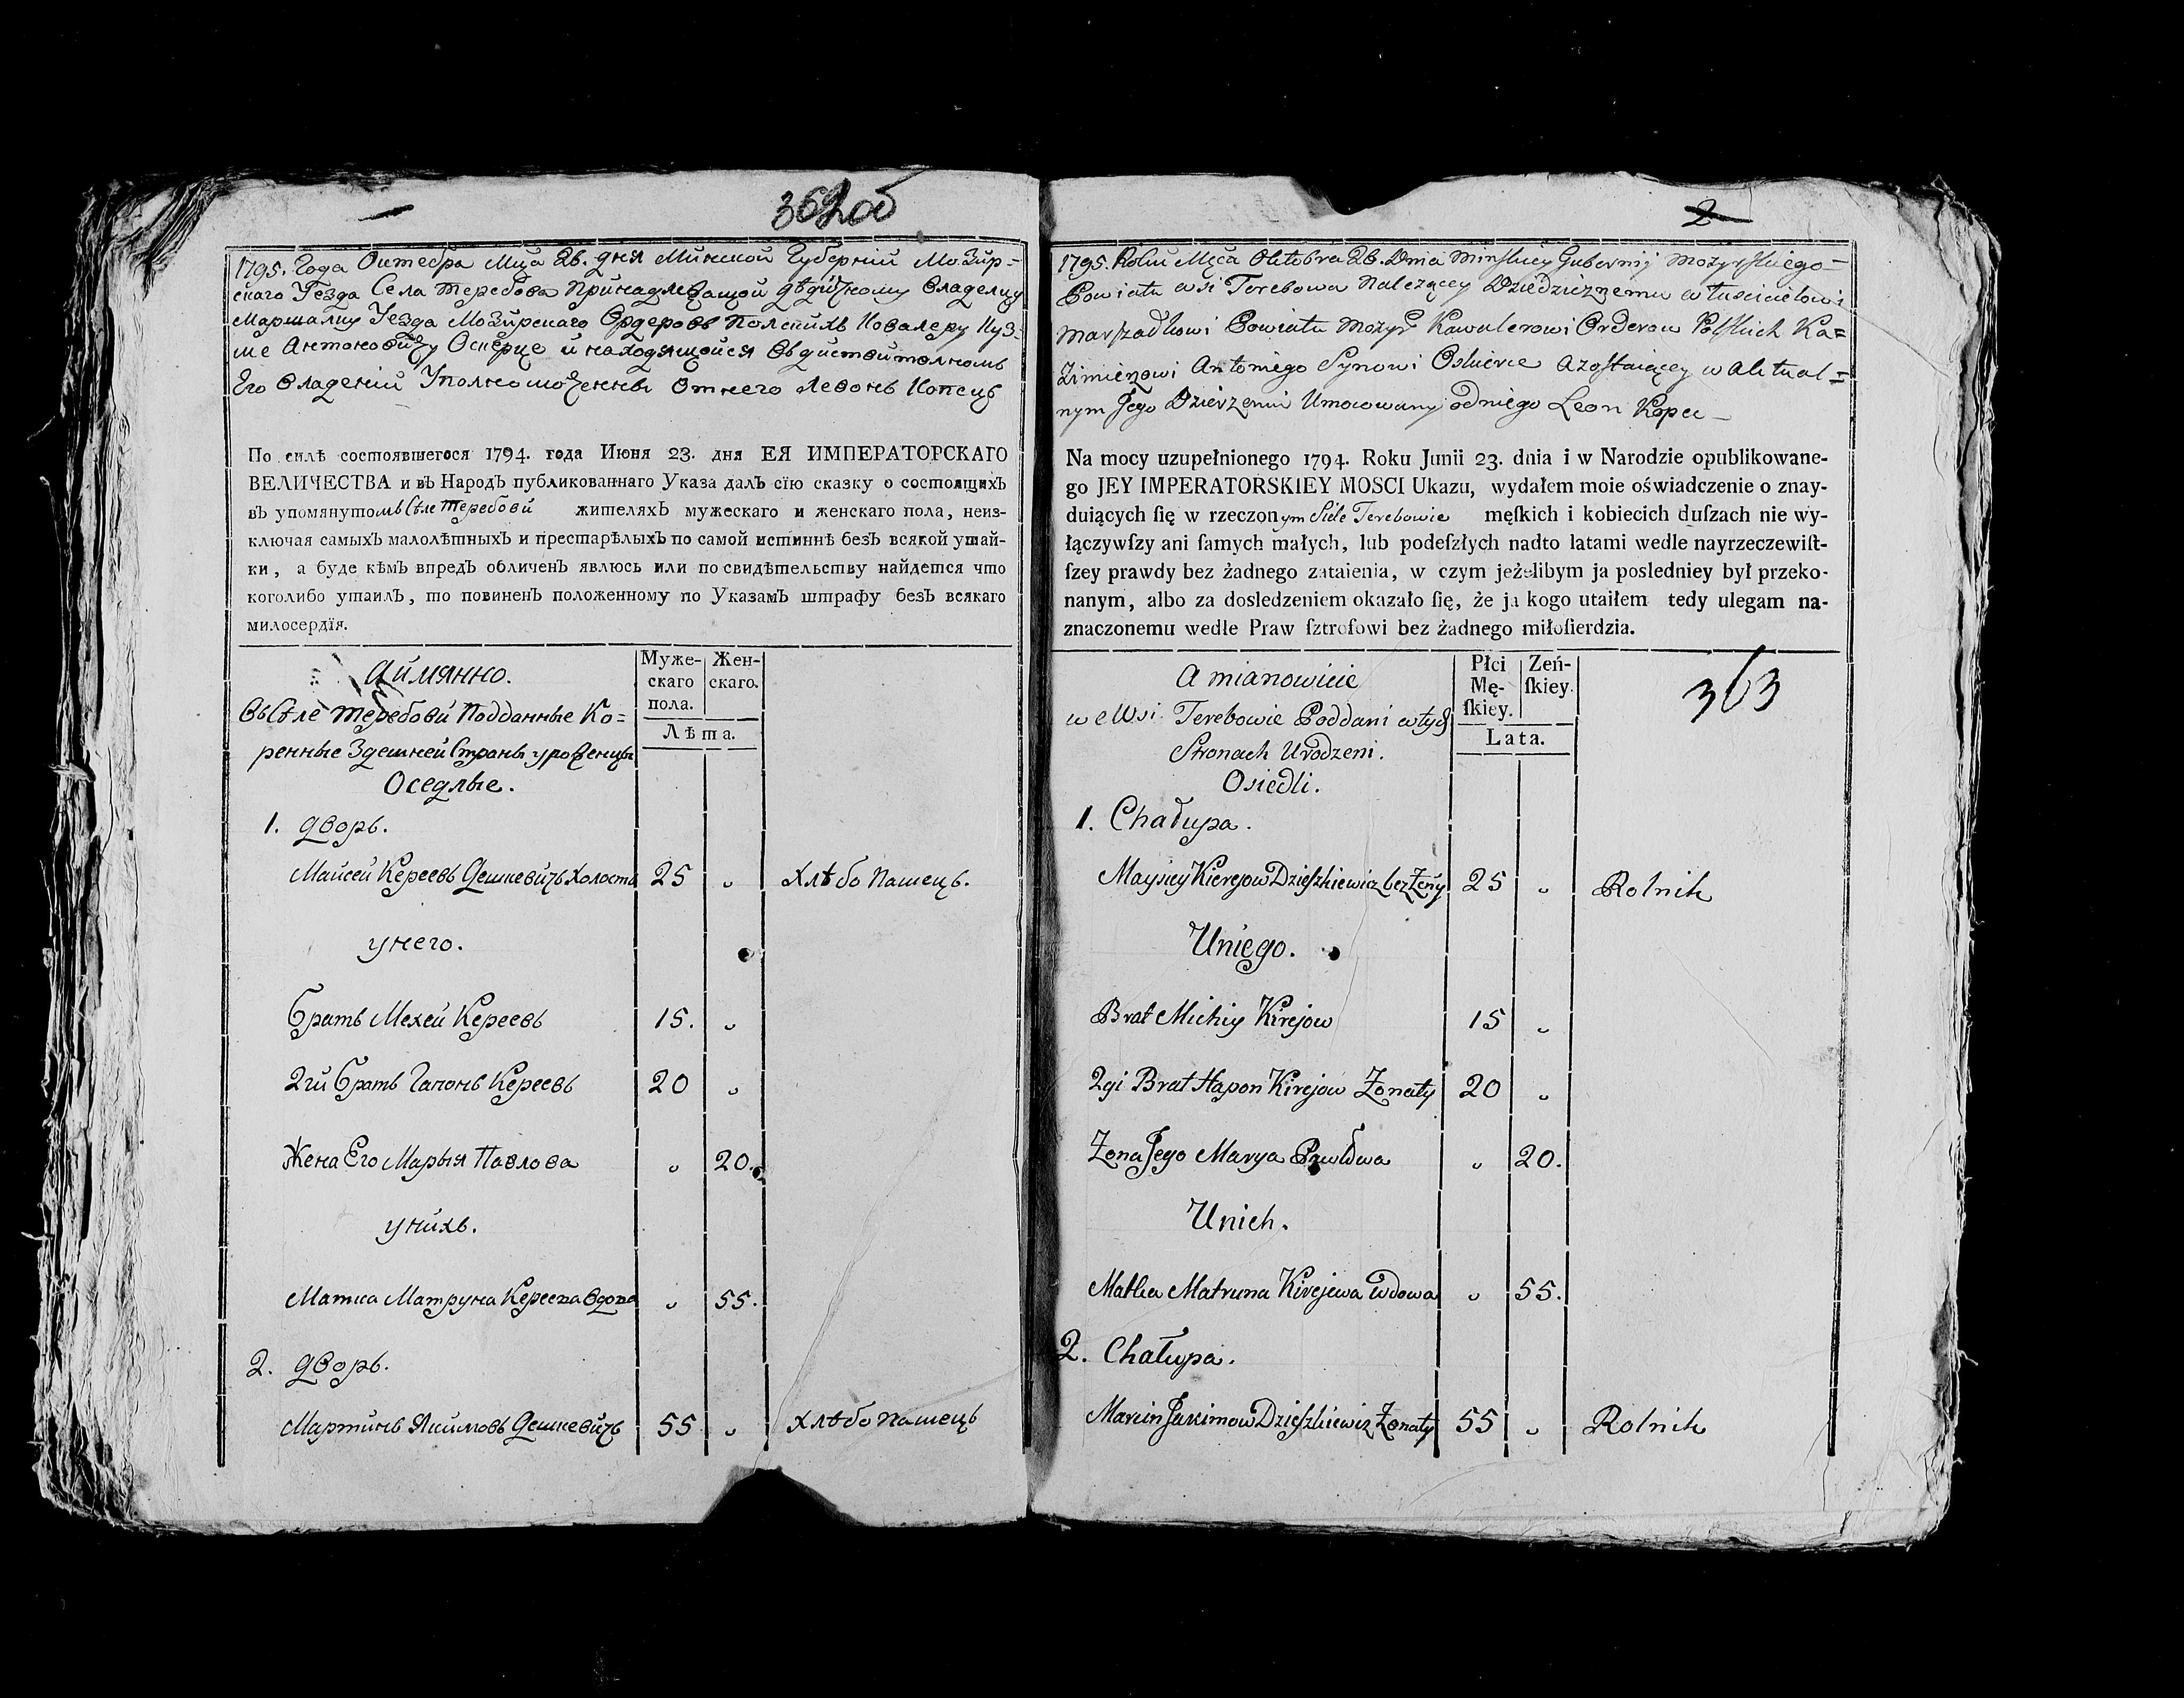 362об
1795. Года Октебра Мца 26. дня Минской Губерній Мозир-
скаго Уезда Села Теребова Принадлежащой дѣдичному Владелцу
Маршалку Уезда Мозирскаго Ордеровъ Полскихъ Ковалеру Куз-
ме Антоновичу Оскерце й находящойся въ дистви телномъ
Его Владеній Уполномоченны От него Левонъ Копецъ
По силѣ состоявшегося 1794. года Июня 23. дня ЕЯ ИМПЕРАТОРСКАГО
ВЕЛИЧЕСТВА и въ НародЪ публикованнаго Указа далЪ сїю сказку о состоящихЪ
вЪ упомянутомъ Селе Теребови жителяхЪ мужескаго и женскаго пола, неиз-
ключая самыхЪ малолѣтныхЪ и престарѣлыхЪ по самой истиннѣ безЪ всякой утай-
ки, а буде кѣмЪ впредЪ обличенЪ явлюсь или по свидѣтельству найдется что
коголибо утаилЪ, то повиненЪ положенному по УказамЪ штрафу безЪ всякаго
милосердїя.
Аймянно.
Муже-
скаго
пола.
Жен-
скаго.
Лѣта.
Въ Селе Теребови Подданные Ко=
ренные Здешней Страны уроженцы
Оседлые.
1. дворъ.
Майсей Кереевъ Дешкевичъ Холостъ 25 „ Хлѣбо Пашецъ.
у него.
Братъ Мехей Кереевъ 15. „
2гй Братъ Гапонъ Кереевъ 20 „
Жена Его Марыя Павлова „ 20.
у нихъ.
Матка Матруна Кереева Вдова „ 55.
2. дворъ.
Мартинъ Якимовъ Дешкевичъ 55 „ Хлѣбо Пашецъ
2
1795. Roku Mca Oktobra 26. Dnia Minskiey Gubernij Mozyrskiego
Powiatu wsi Terebowa Nalezącey Dziedzicznemu Włascicielowi
Marszadkowi Powiatu Mozyr Kawalerowi Orderow Polskich Ka=
zimierzowi Antoniego Synowi Oskierce a zostaiącey w aktual=
nym Jego Dzierzeniu Umocowany od niego Leon Kopec
Na mocy uzupełnionego 1794. Roku Junii 23. dnia i w Narodzie opublikowane-
go JEY IMPERATORSKIEY MOSCI Ukazu, wydałem moie oświadczenie o znay-
duiących ſię w rzeczonym Siele Terebowie męſkich i kobiecich duſzach nie wy-
łączywſzy ani ſamych małych, lub podeſzłych nadto latami wedle nayrzeczewiſt-
ſzey prawdy bez żadnego zataienia, w czym jeżelibym ja posledniey był przeko-
nanym, albo za dosledzeniem okazało ſię, że ja kogo utaiłem tedy ulegam na-
znaczonemu wedle Praw ſztrofowi bez żadnego miłoſierdzia.
A mianowicie
Płci
Mę-
ſkiey.
Zeń-
ſkiey.
Lata.
363
we Wsi Terebowie Poddani w tych
Stronach Urodzeni.
Osiedli.
1. Chałupa.
Maysiey Kierejow Dzieszkiewicz bez Żeny 25 „ Rolnik
U niego.
Brat Michiy Kirejow 15 „
2gi Brat Hapon Kirejow Zonaty 20 „
Zona Jego Marya Pawłowa „ 20.
U nich.
Matka Matruna Kirejewa Wdowa „ 55.
2. Chałupa.
Marcin Jakimow Dzieszkiewicz Zonaty 55 „ Rolnik